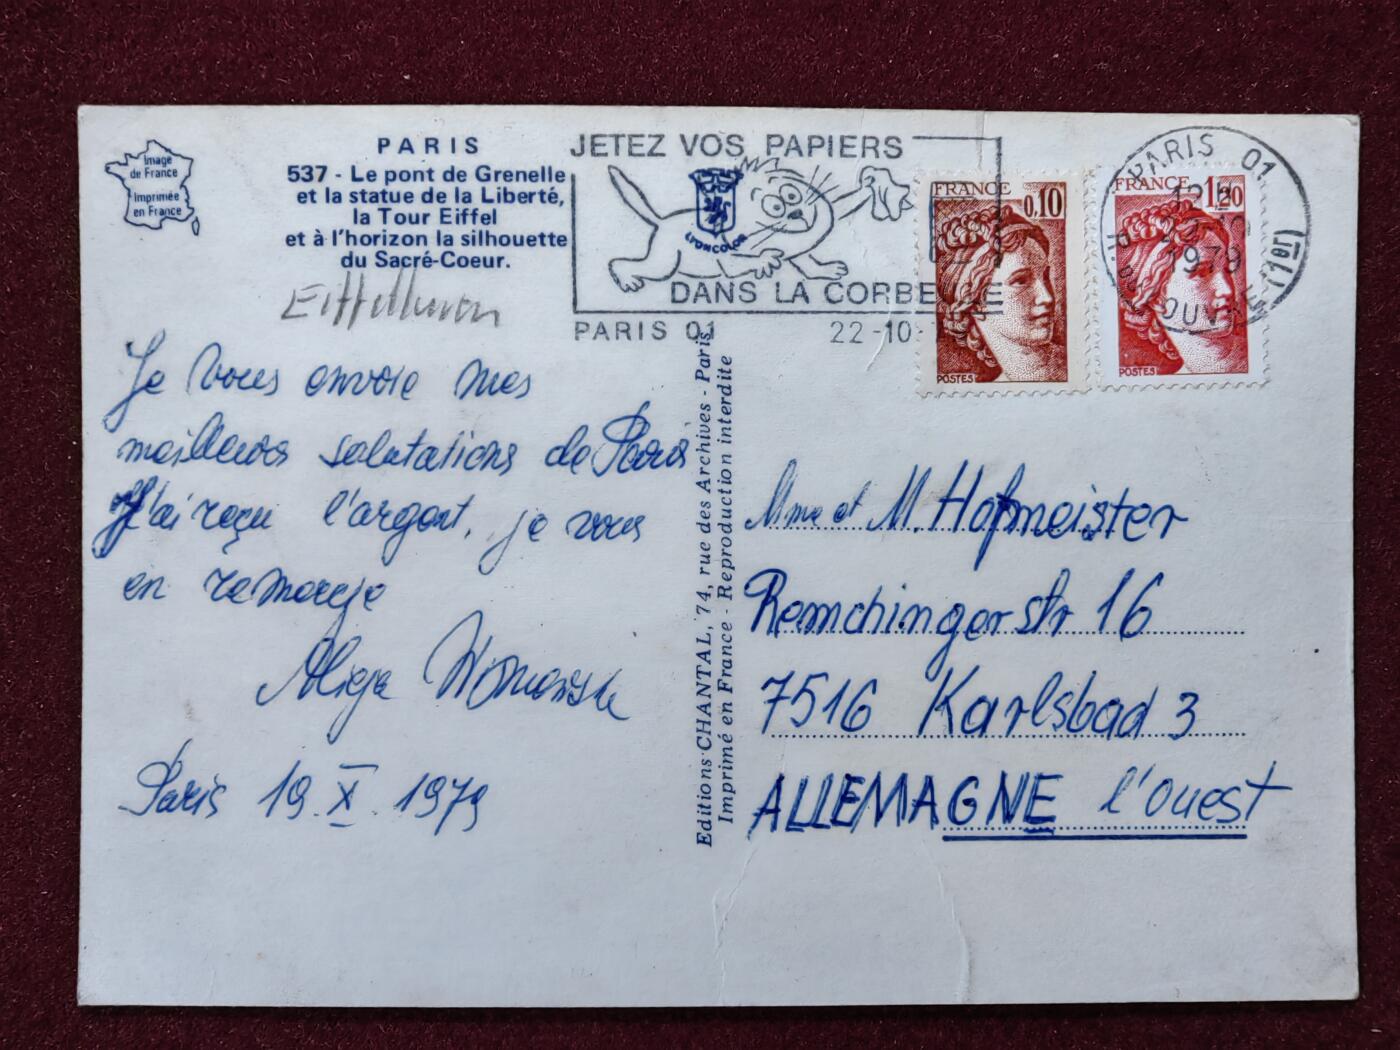 Image
de France
Imprimée
en France
PARIS
537 - Le pont de Grenelle
et la statue de la Liberté,
la Tour Eiffel
et à l'horizon la silhouette
du Sacré-Coeur.
JETEZ VOS PAPIERS
LYONCOLOR
DANS LA CORBEILLE
PARIS 01
22-10-
FRANCE
0,10
POSTES
FRANCE
1,20
POSTES
PARIS 01
1979
R. DU LOUVRE (1er)
Je vous envoie mes
meilleurs salutations de Paris
J'ai reçu l'argent, je vous
en remercje
Paris 19.X.1979
Editions CHANTAL, 74, rue des Archives - Paris
Imprimé en France - Reproduction interdite
Mme et M. Hofmeister
Remchingerstr 16
7516 Karlsbad 3
ALLEMAGNE l'ouest